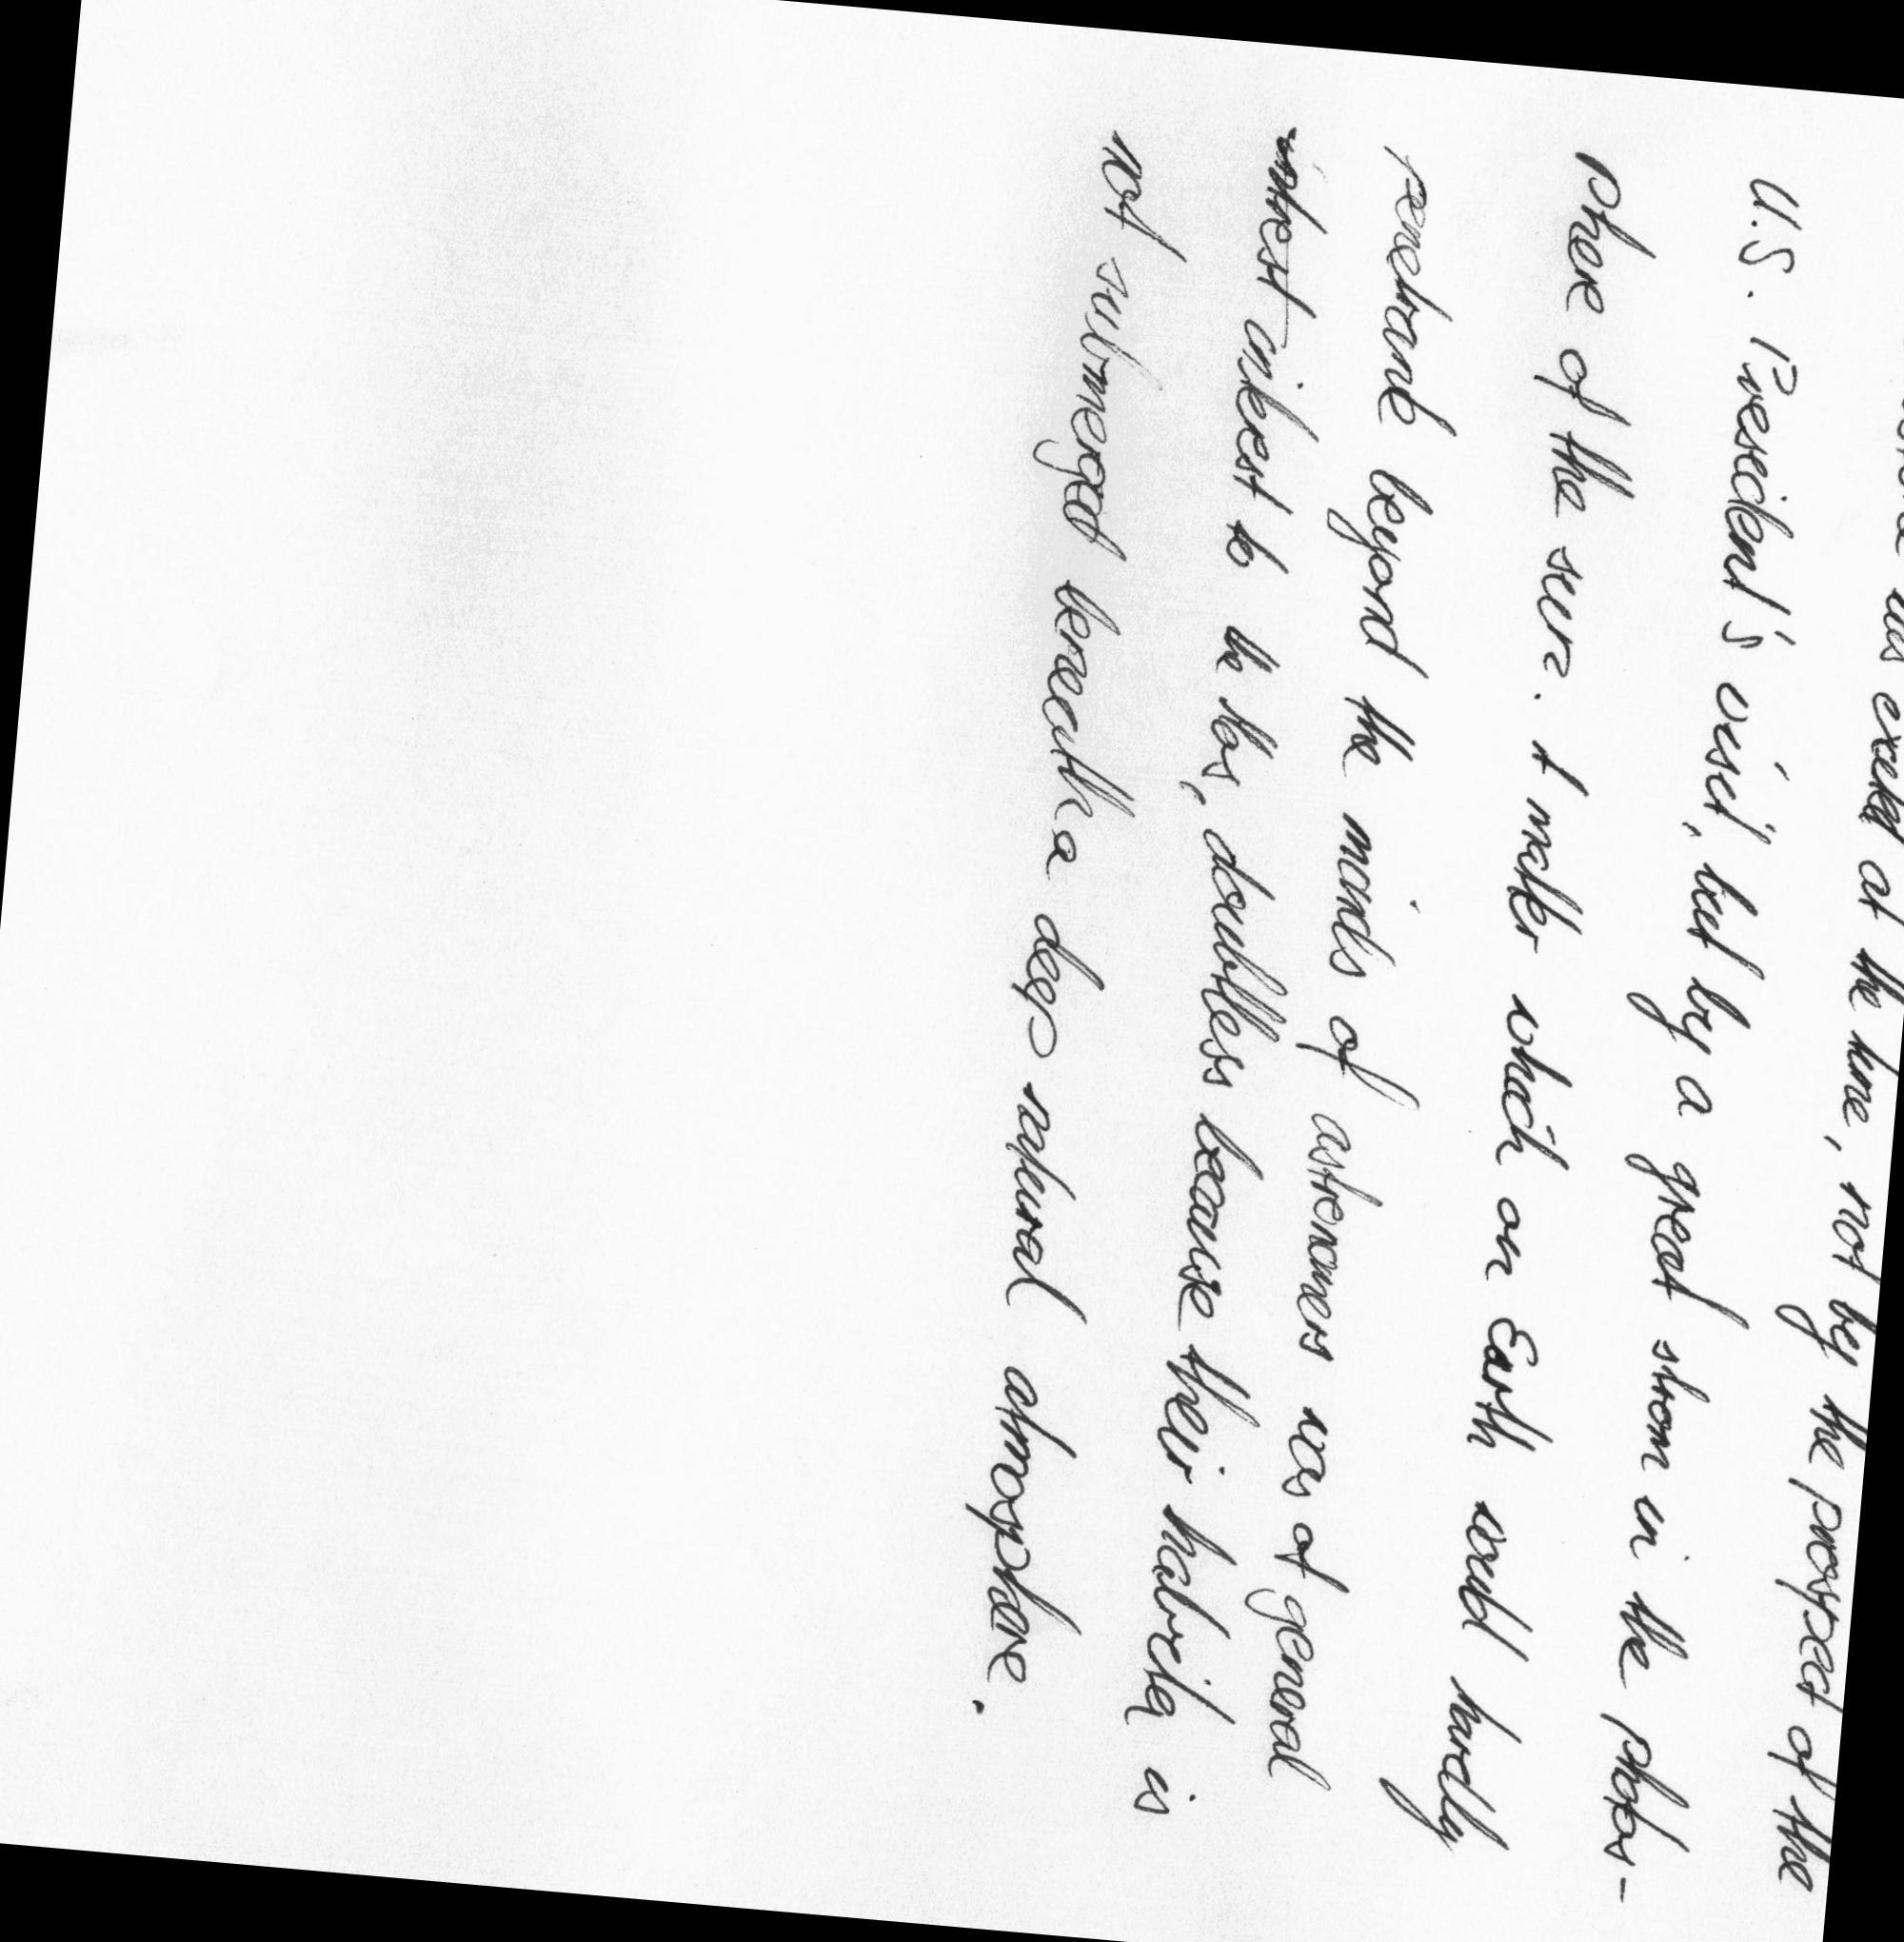 was excited at the time, not by the prospect of the
U.S. President's visit, but by a great strom in the photos-
phere of the sun. A matter which on Earth would hardly
penetrante beyond the minds of astrenomers was of general
intrest interest to the Nos, doubtless because their habreily is
not submerged beneath a deep natural atmosphere.